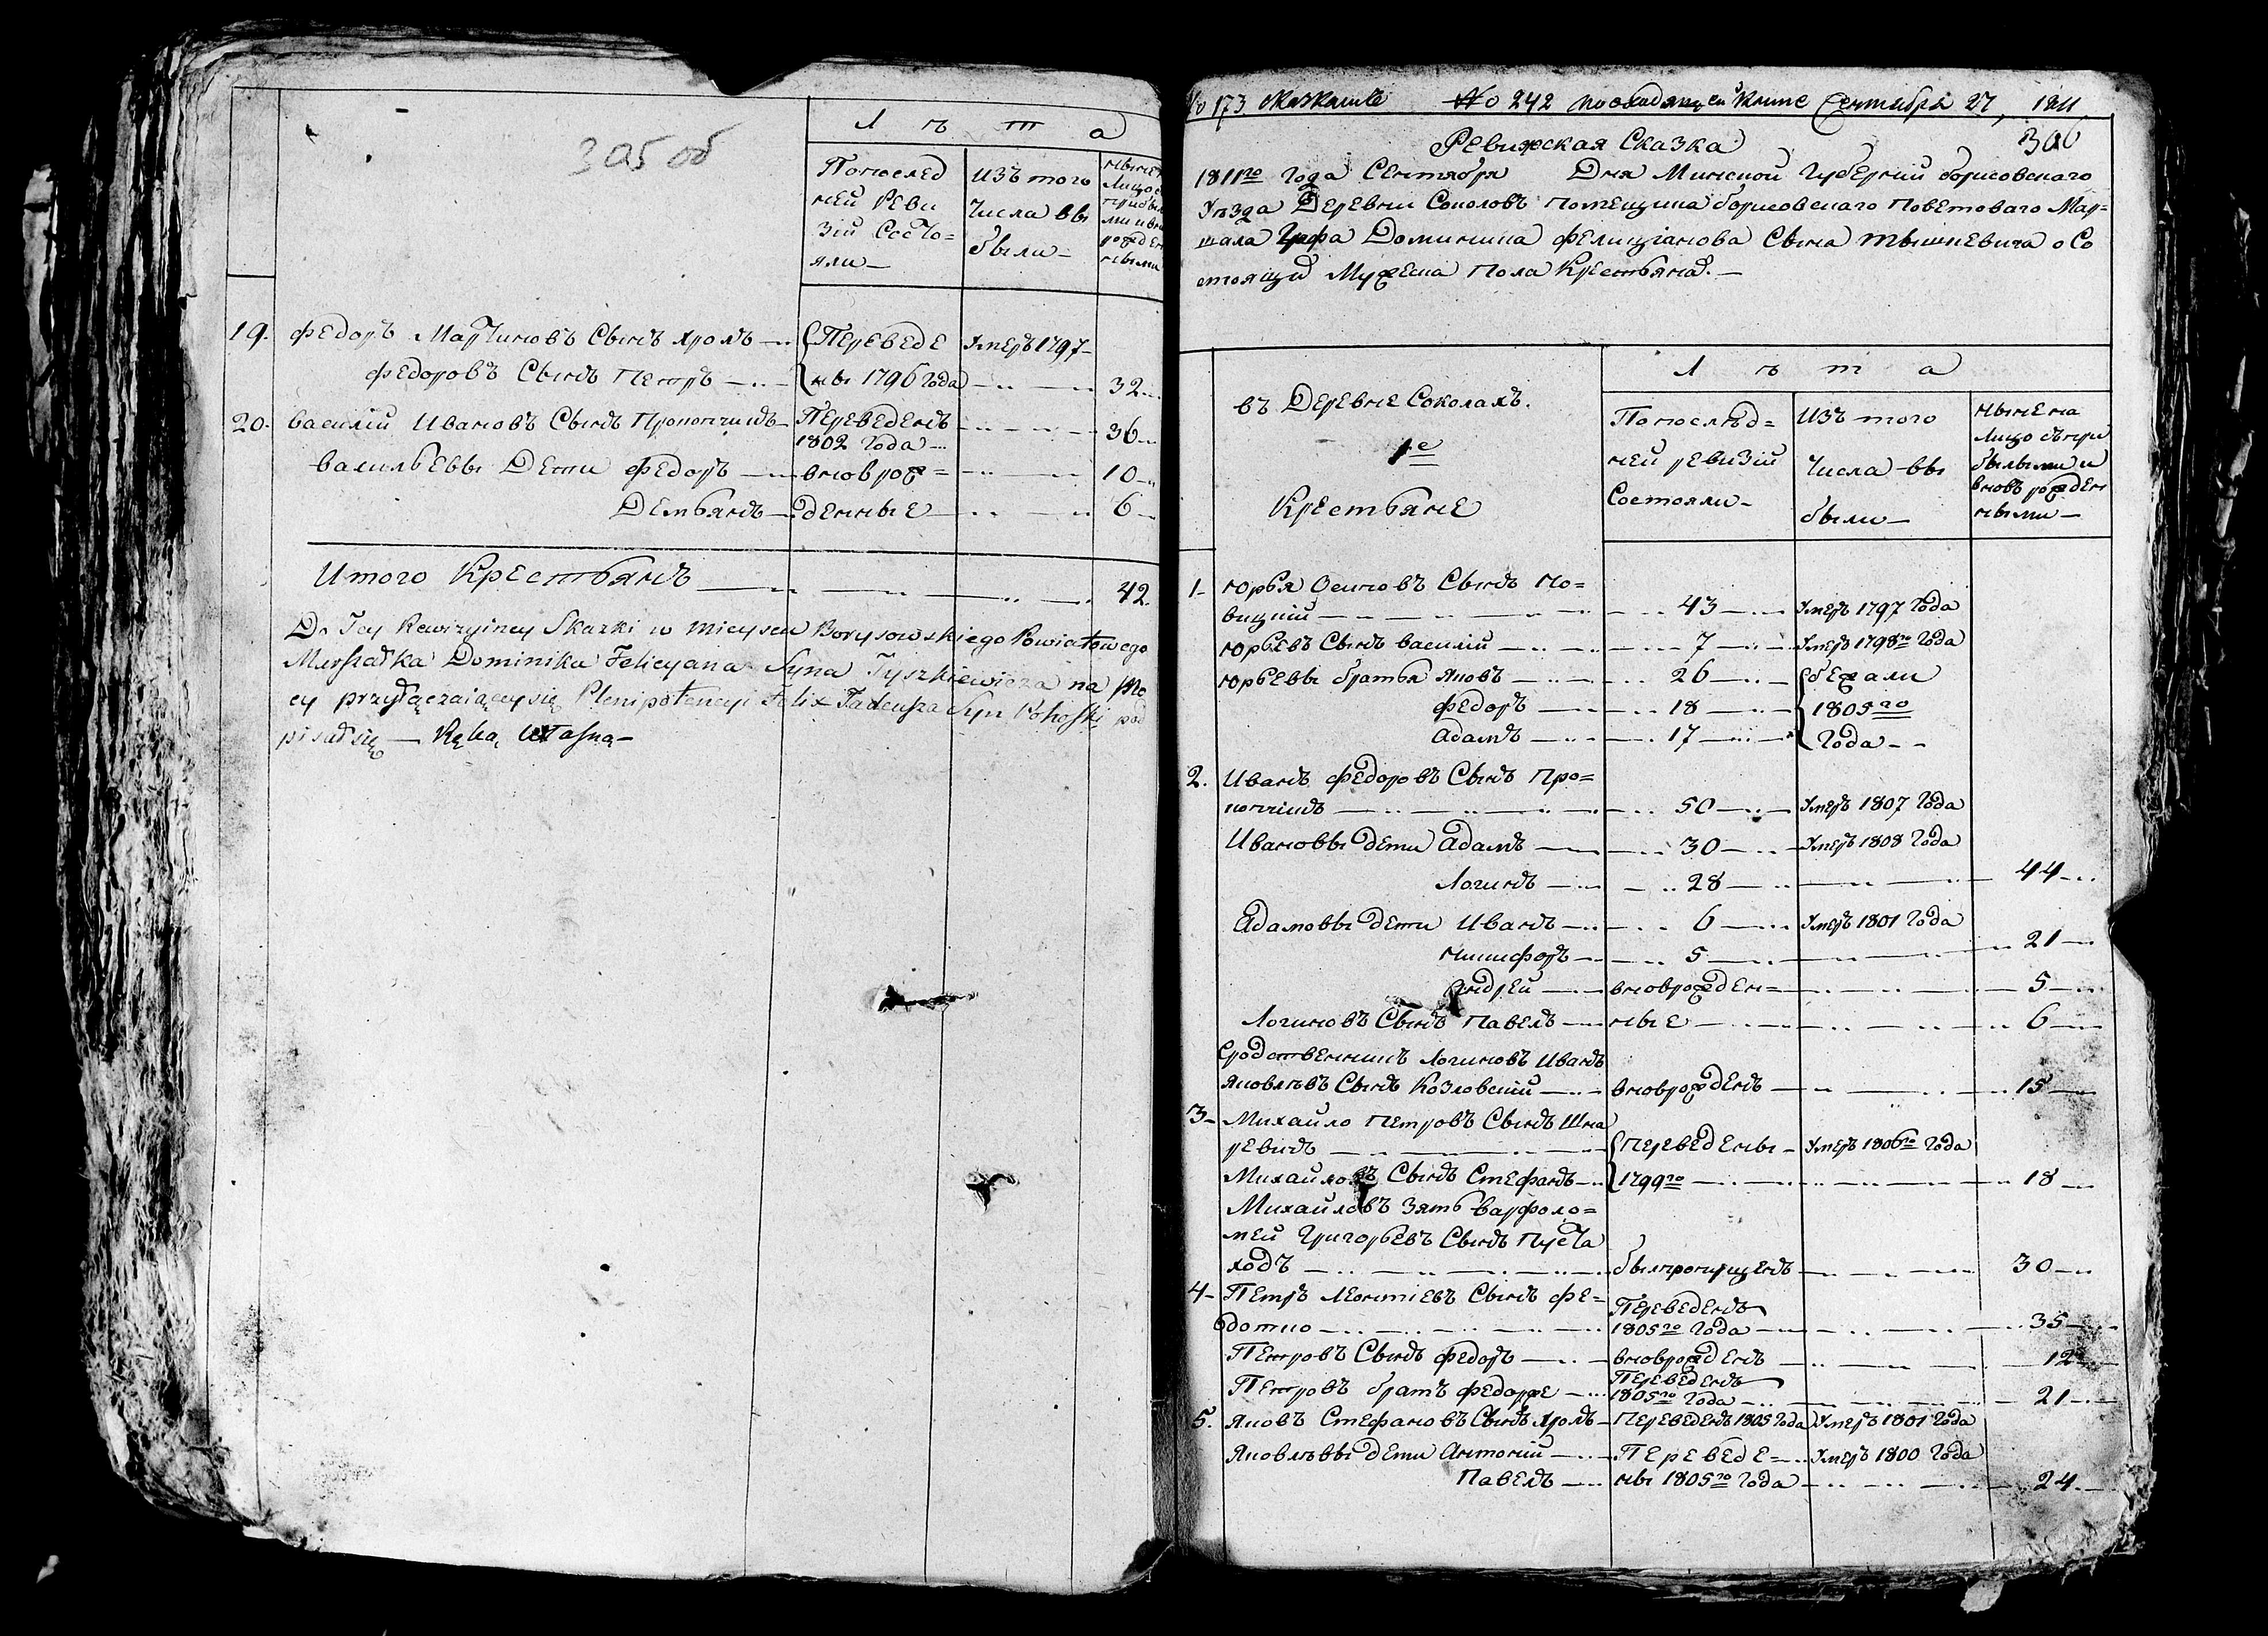 305 об
Лѣта
По послед
ней Реви
зіи Состо=
яли —
Изъ того
числа вы
были —
19. Федоръ Марчиновъ Сынъ Хромъ — Переведе Умеръ 1797
Федоровъ Сынъ Петръ — ны 1796 Года — 32
20. Василій Ивановъ Сынъ Прокопчикъ — Переведенъ 1802 Года — 36
Васильевы Дети Федоръ — вновьрож= — 10
Демьянъ — денные — 6
Итого Крестьянъ — 42.
Do Tey Rewizyiney Skazki w mieyscu Borysowskiego Powiatowego
Marszałka Dominika Felicyana Syna Tyszkiewicza na Mo
cy przyłączaiącey się Plenipotencyi Felix Tadeusza Syn Pohoski pod
pisał się — Ręką własną —
No 173 No 242 по входящей книге Сентября 27, 1811
306
Ревижская Сказка
1811го Года Сентября Дня Минской Губерніи борисовскаго
Уѣзда Деревни Соколовъ помещика борисовскаго поветоваго Мар=
шала Графа Доминика Фелиціанова Сына Тышкевича о Со
стоящих Мужеска пола Крестьянах. —
Лѣта
въ Деревне Соколахъ.
1е
Крестьяне
По послѣд=
ней ревизіи
Состояли —
Изъ того
числа вы
были —
ныне на
лицо съ при
былыми и
вновь рожден
ными —
1 — Юрья Осиповъ Сынъ По=
вицкій — 43 — Умеръ 1797 Года
Юрьевъ Сынъ Василій — 7 — Умеръ 1798го Года
Юрьевы братья Яковъ — 26 — бежали
Федоръ — 18 — 1805го
Адамъ — 17 — Года —
2. Иванъ Федоровъ Сынъ Про=
копчикъ — 50 — Умеръ 1807 Года
Ивановы дети Адамъ — 30 — Умеръ 1808 Года
Логинъ — 28 — 44
Адамовы дети Иванъ — 6 — Умеръ 1801 Года
Никифоръ — 5 — 21
Андрей — вновьрожден= — 5
Логиновъ Сынъ Павелъ — ные — 6
Сродственникъ Логиновъ Иванъ
Яковлевъ Сынъ Козловскій — вновьрожденъ — 15
3 — Михайло Петровъ Сынъ Шка
ревичъ — Переведены — Умеръ 1806го Года
Михайловъ Сынъ Стефанъ — 1799го — 18
Михайловъ Зять Варфоло=
мей Григорьевъ Сынъ Пуста
ходъ — былпропущенъ — 30
4 — Петръ Леонтіевъ Сынъ Фе= Переведенъ
дотко — 1805го Года — 35
Петровъ Сынъ Федоръ — вновьрожденъ — 12
Петровъ братъ Федоръ же — Переведенъ 1805го Года — 21
5. Яковъ Стефановъ Сынъ Хромъ — Переведенъ 1805 Года Умеръ 1801 Года
Яковлевы дети Антоній — Переведе= Умеръ 1800 Года
Павелъ — ны 1805го Года — 24